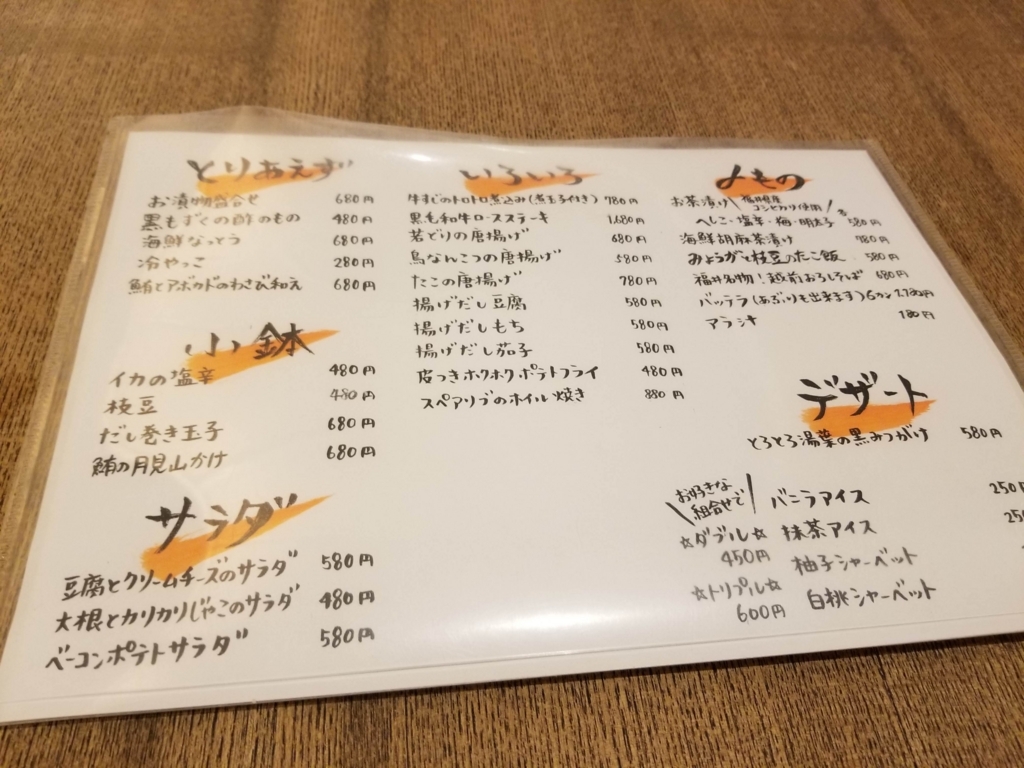 とりあえず
お漬物盛合せ 680円
黒もずくの酢のもの 480円
海鮮なっとう 680円
冷やっこ 280円
鮪とアボカドのわさび和え 680円
小鉢
イカの塩辛 480円
枝豆 480円
だし巻き玉子 680円
鮪の月見山かけ 680円
サラダ
豆腐とクリームチーズのサラダ 580円
大根とカリカリじゃこのサラダ 480円
ベーコンポテトサラダ 580円
いろいろ
牛すじのトロトロ煮込み(煮玉子付き) 780円
黒毛和牛ロースステーキ 1,680円
若どりの唐揚げ 680円
鳥なんこつの唐揚げ 580円
たこの唐揚げ 780円
揚げだし豆腐 580円
揚げだしもち 580円
揚げだし茄子 580円
皮つきホクホクポテトフライ 480円
スペアリブのホイル焼き 880円
〆もの
お茶漬け 福井県産
コシヒカリ使用
へしこ・塩辛・梅・明太子 各580円
海鮮胡麻茶漬け 780円
みょうがと枝豆のたこ飯 580円
福井名物!越前おろしそば 680円
バッテラ(あぶりも出来ます)6カン
アラ汁 180円
デザート
とろとろ湯葉の黒みつがけ 580円
お好きな
組合せで
☆ダブル☆
450円
☆トリプル☆
600円
バニラアイス 250円
抹茶アイス 25
柚子シャーベット
白桃シャーベット